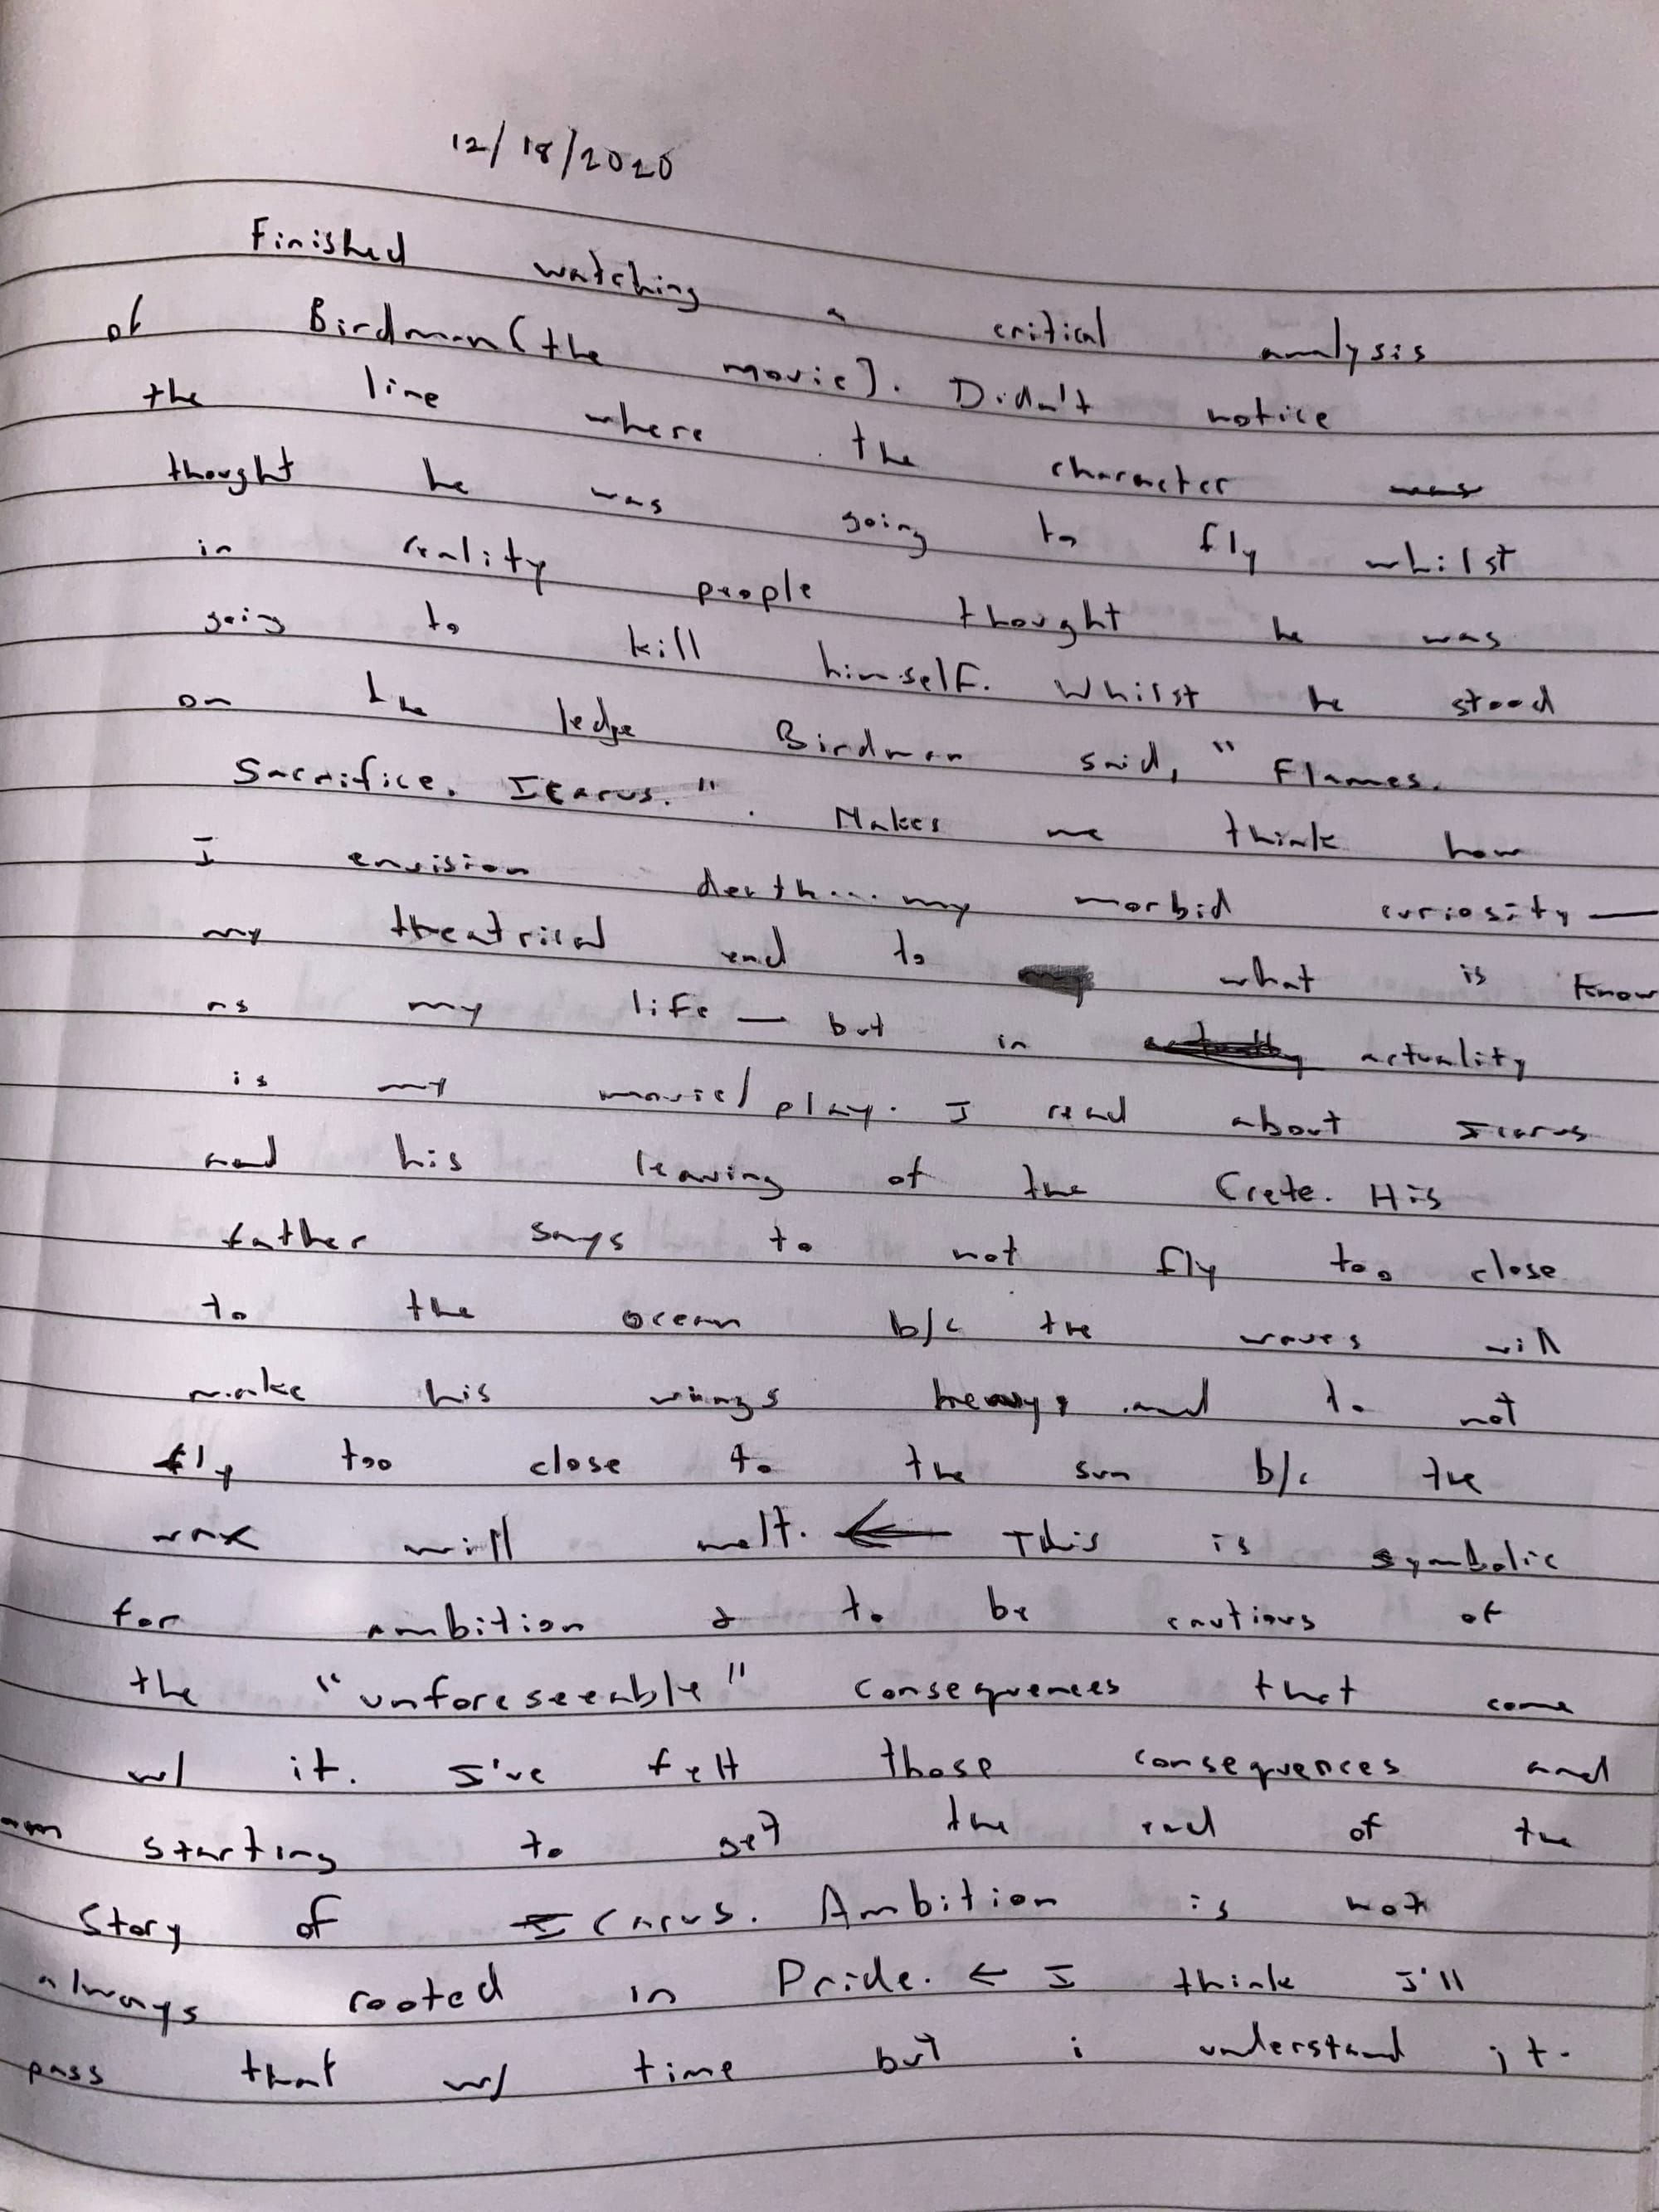 12/18/2020
Finished watching a critical analysis
of Birdman (the movie). Didn't notice
the line where the character was
thought he was going to fly whilst
in reality people thought he was
going to kill himself. Whilst he stood
on the ledge Birdman said, "Flames.
Sacrifice. Icarus.". Makes me think how
I envision death... my morbid curiosity —
my theatrical end to what is know
as my life — but in actuality
is my movie/play. I read about Icarus
and his leaving of the Crete. His
father says to not fly too close
to the ocean b/c the waves will
make his wings heavy, and to not
fly too close to the sun b/c the
wax will melt. ← This is symbolic
for ambition & to be cautious of
the "unforeseeable" consequences that come
w/ it. I've felt those consequences and
am starting to get the end of the
story of Icarus. Ambition is not
always rooted in Pride. ← I think I'll
pass that w/ time but i understand it.